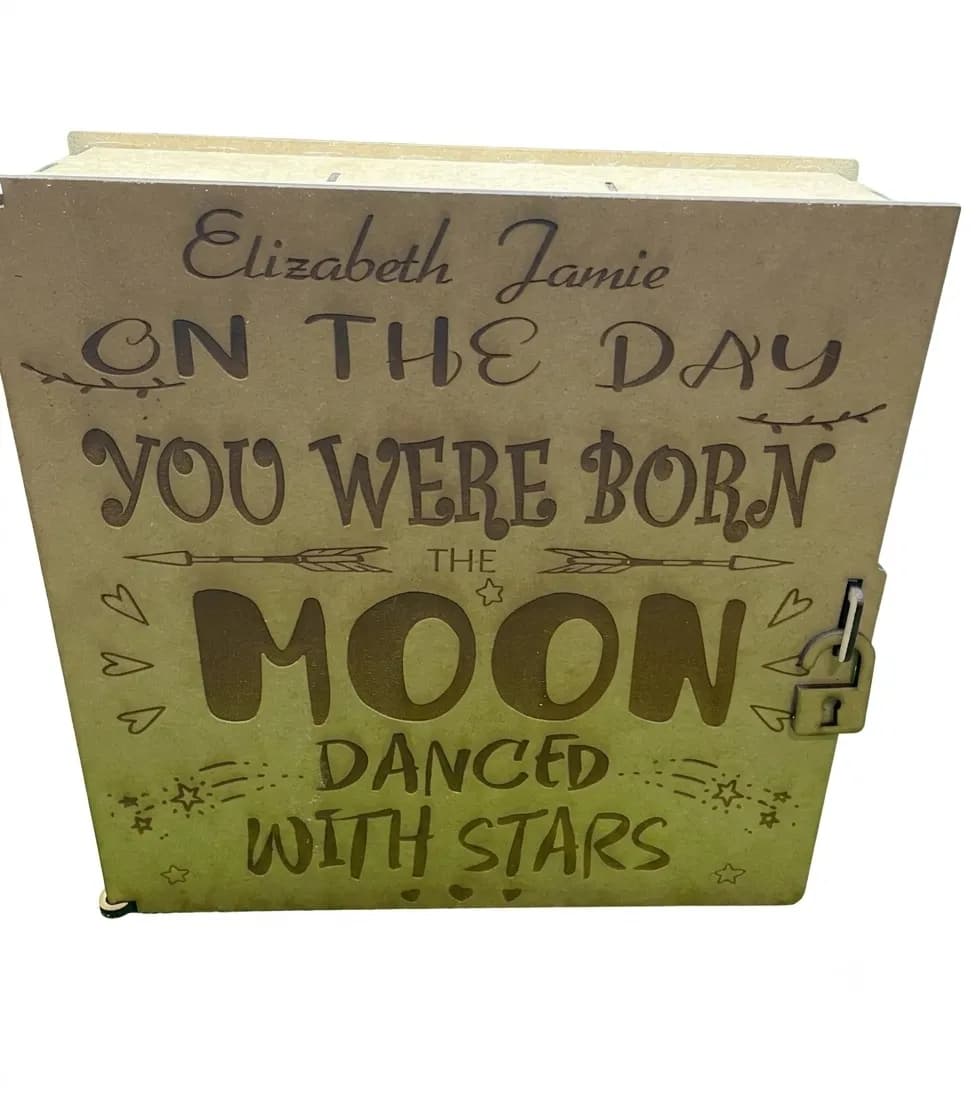 Elizabeth Jamie
ON THE DAY
YOU WERE BORN
THE
MOON
DANCED
WITH STARS